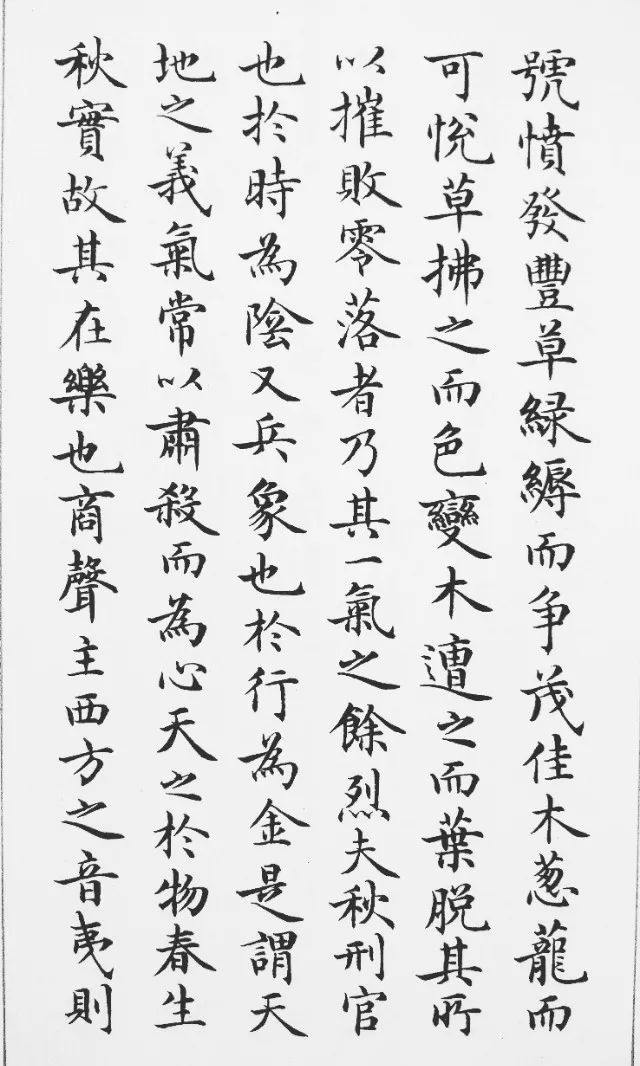 號憤發豐草緑縟而争茂佳木葱蘢而
可悅草拂之而色變木遭之而葉脱其所
以摧敗零落者乃其一氣之餘烈夫秋刑官
也於時為陰又兵象也於行為金是謂天
地之義氣常以肅殺而為心天之於物春生
秋實故其在樂也商聲主西方之音夷則